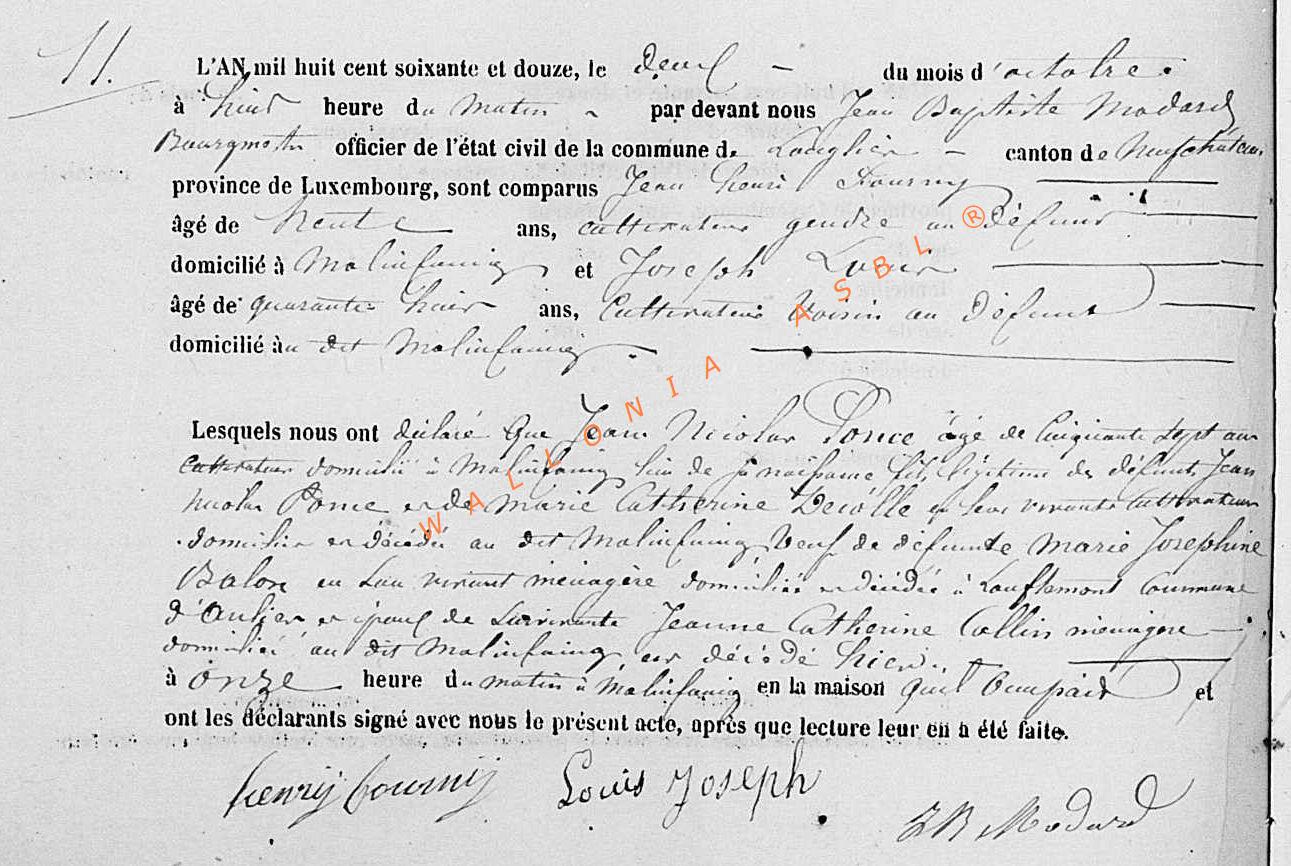 11.
L'AN mil huit cent soixante et douze, le deux du mois d'octobre
à huit heure du matin par devant nous Jean Baptiste Modard
Bourgmestre officier de l'état civil de la commune de Longlier canton de Neufchâteau
province de Luxembourg, sont comparus Jean henri
âgé de trente ans, cultivateur gendre au défunt
domicilié à Molinfaing et Joseph Louis
âgé de quarante huit ans, Cultivateur Voisin au défunt
domicilié au dit Molinfaing
Lesquels nous ont déclaré que Jean Nicolas Ponce âgé de Cinquante sept ans
cultivateur domicilié à Molinfaing lieu de sa naissance fils légitime des défunts Jean
nicolas Ponce et de marie Catherine Decolle en leur vivant Cultivateurs
domiciliés et décédés au dit Molinfaing Veuf de défunte Marie Josephine
Balon en son vivant ménagère domiciliée et décédée à Louftemont Commune
d'Anlier et époux de survivante Jeanne Catherine Collin ménagère
domiciliée au dit Molinfaing est décédé hier
à onze heure du matin à Molinfaing en la maison qu'il occupait et
ont les déclarants signé avec nous le présent acte, après que lecture leur en a été faite.
Louis Joseph
JB Modard
WALLONIA ASBL ®